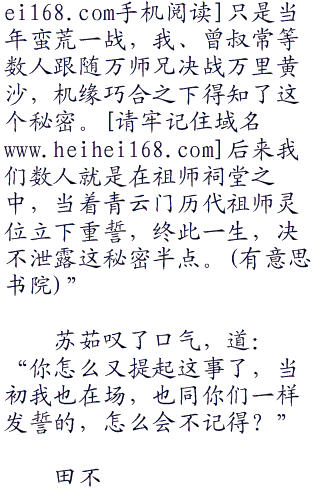 ei168.com手机阅读]只是当
年蛮荒一战，我、曾叔常等
数人跟随万师兄决战万里黄
沙，机缘巧合之下得知了这
个秘密。[请牢记住域名
www.heihei168.com]后来我
们数人就是在祖师祠堂之
中，当着青云门历代祖师灵
位立下重誓，终此一生，决
不泄露这秘密半点。(有意思
书院)”
苏茹叹了口气，道：
“你怎么又提起这事了，当
初我也在场，也同你们一样
发誓的，怎么会不记得？”
田不